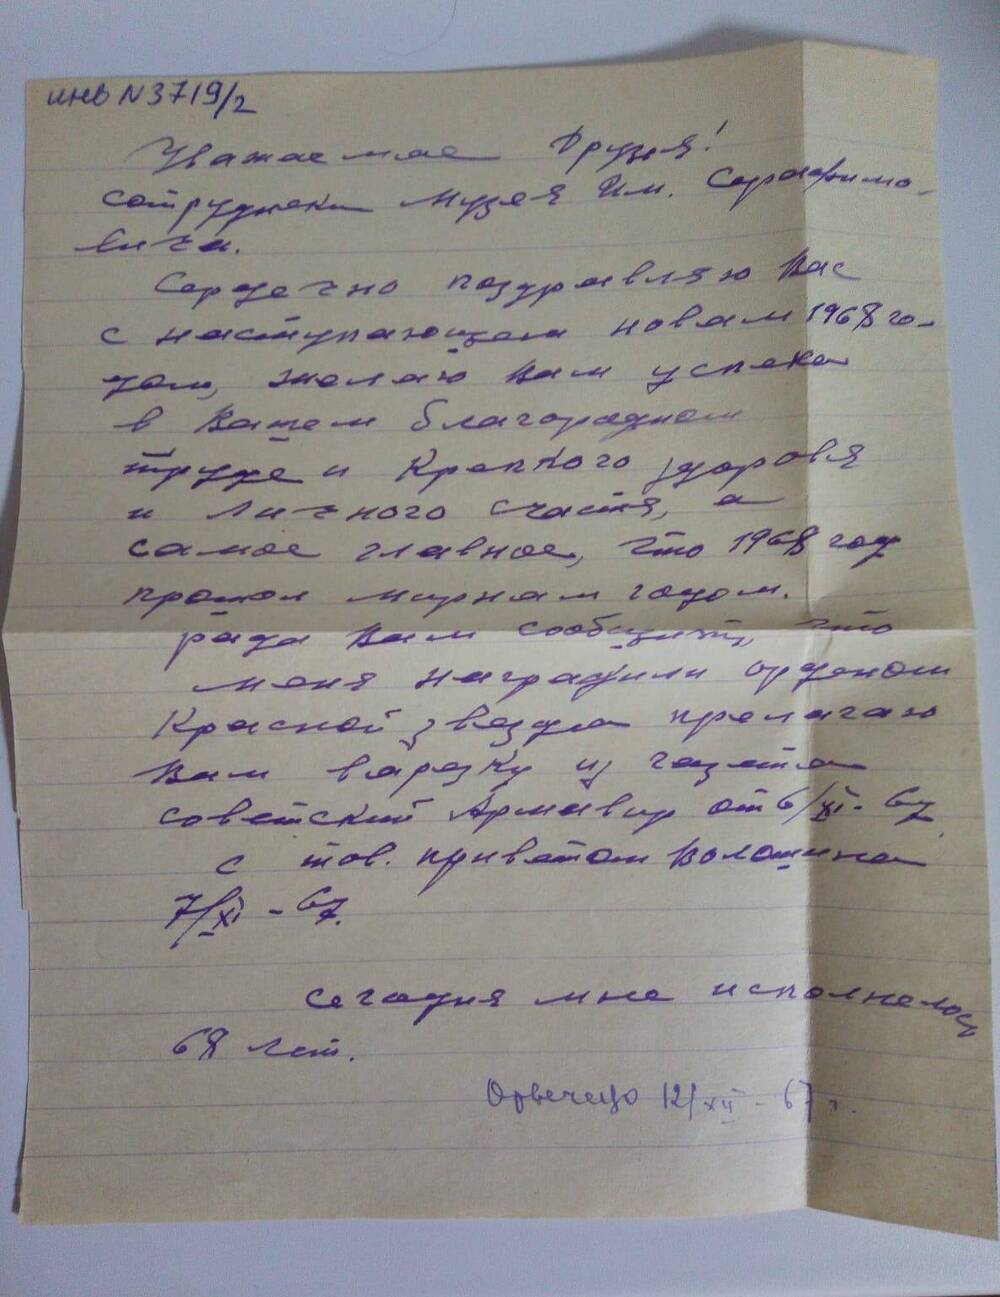 инв N 3719/2
Уважаемае Друзья!
сотруднеки Музея Им. Серафимо-
вича.
Сердечно поздровляю Вас
с наступающем новам 1968 го-
дом, желаю Вам успеха
в Вашем благорадном
труде и Крепкого здоровя
и Личного счастя, а
самое главное, что 1968 год
прошол мирнам годом.
рада Вам сообщить, что
меня наградили орденом
Красной звезды прелагаю
Вам варезку из газета
советский Армавир от 6/XI-67
с тов. приветом Волошина
7/XI-67.
Сегодня мне исполнелось
68 лет.
Отвечено 12/XII-67 г.